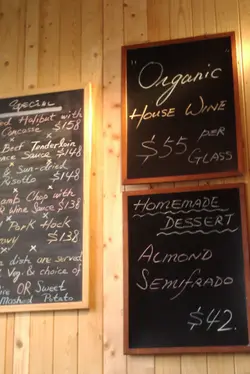 Special
d Halibut with
Concasse $158
x
Beef Tenderloin
Sauce $148
x
& Sun-dried
Risotto $148
x
amb Chop with
Wine Sauce $138
x
Pork Hock
avy $138
x
dish are served
Veg. & choice of
OR Sweet
Mashed Potato
"Organic
House Wine
$55 per
Glass
Homemade
Dessert
Almond
Semifrado
$42.